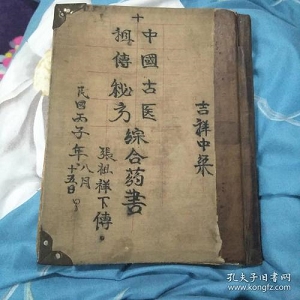 十
中國古医
祖傳秘方
綜合药書
張祖祥下傳
民囯丙子年八月
十五日
吉祥中药
孔夫子旧书网
www.kongfz.com